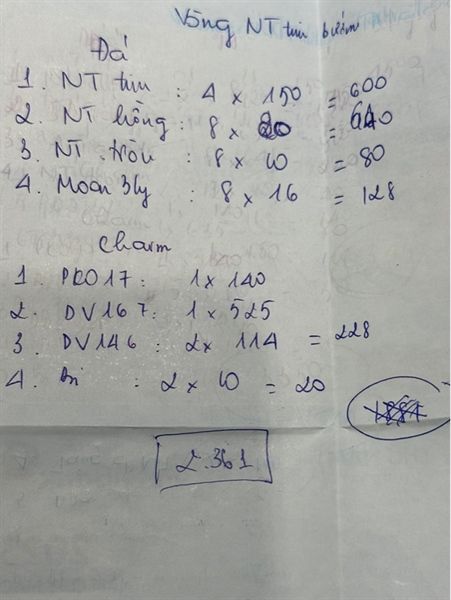 Vòng NT tim bướm
Đá
1. NT tim : 4 x 150 = 600
2. NT hồng : 8 x 80 = 640
3. NT tròn : 8 x 10 = 80
4. Moon 3ly : 8 x 16 = 128
Charm
1. PK017 : 1 x 140
2. DV167 : 1 x 525
3. DV146 : 2 x 114 = 228
4. Bi : 2 x 10 = 20
2.361